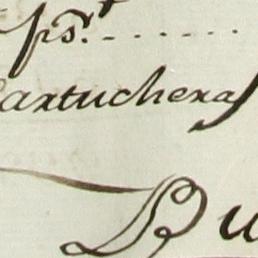 ps.t.......
artucheras
Bu